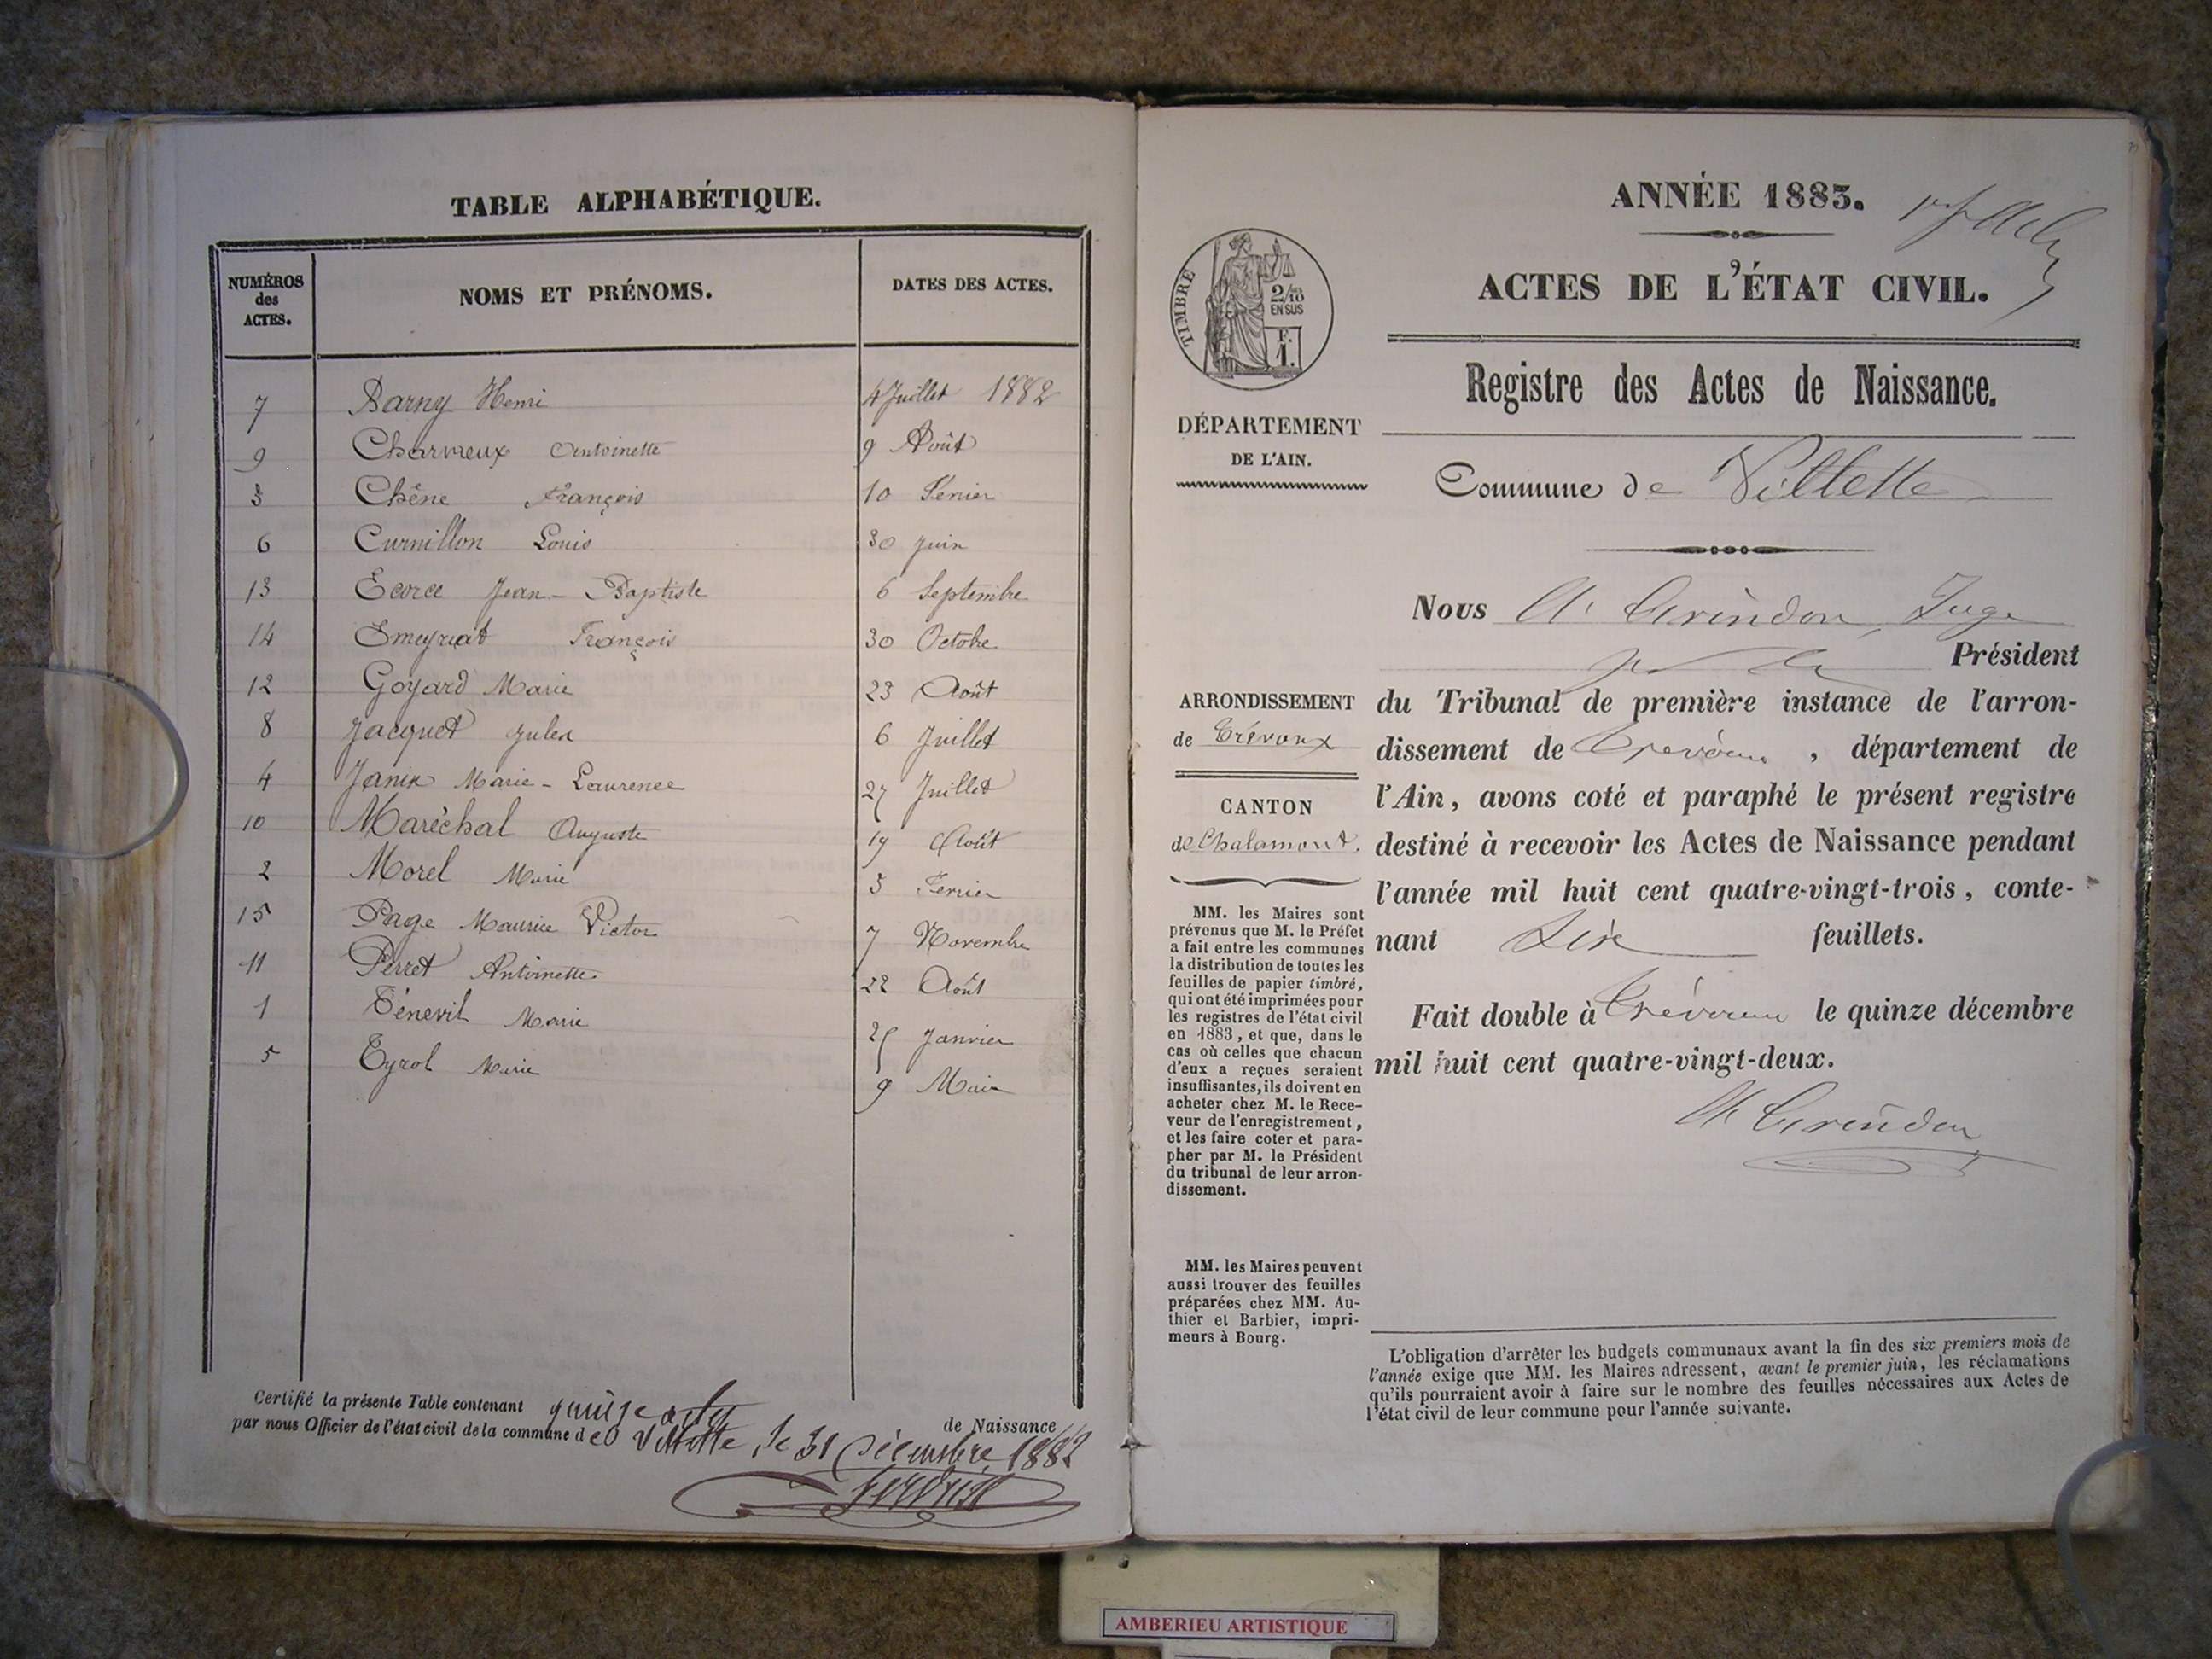 TABLE ALPHABÉTIQUE.
NUMÉROS des ACTES. NOMS ET PRÉNOMS. DATES DES ACTES.
7 Barny Henri 4 Juillet 1882
9 Charvieux Antoinette 9 Août
3 Chêne François 10 Février
6 Curnillon Louis 30 Juin
13 Ecorce Jean-Baptiste 6 Septembre
14 Emeyriat François 30 Octobre
12 Goyard Marie 23 Août
8 Jacquet Jules 6 Juillet
4 Janin Marie-Laurence 27 Juillet
10 Maréchal Auguste 19 Août
2 Morel Marie 5 Fevrier
15 Page Maurice Victor 7 Novembre
11 Perret Antoinette 22 Août
1 Ténevit Marie 25 Janvier
5 Tyrol Marie 9 Mai
Certifié la présente Table contenant quinze actes de Naissance
par nous Officier de l'état civil de la commune de Villette, le 31 Décembre 1882
ANNÉE 1883.
ACTES DE L'ÉTAT CIVIL.
Registre des Actes de Naissance.
Commune de Villette
TIMBRE
2/10 EN SUS
F. 1.
DÉPARTEMENT
DE L'AIN.
ARRONDISSEMENT
de Trévoux
CANTON
de Chalamont.
MM. les Maires sont
prévenus que M. le Préfet
a fait entre les communes
la distribution de toutes les
feuilles de papier timbré,
qui ont été imprimées pour
les registres de l'état civil
en 1883, et que, dans le
cas où celles que chacun
d'eux a reçues seraient
insuffisantes, ils doivent en
acheter chez M. le Rece-
veur de l'enregistrement,
et les faire coter et para-
pher par M. le Président
du tribunal de leur arron-
dissement.
MM. les Maires peuvent
aussi trouver des feuilles
préparées chez MM. Au-
thier et Barbier, impri-
meurs à Bourg.
Nous Grindon, Juge
Président
du Tribunal de première instance de l'arron-
dissement de Trévoux, département de
l'Ain, avons coté et paraphé le présent registre
destiné à recevoir les Actes de Naissance pendant
l'année mil huit cent quatre-vingt-trois, conte-
nant feuillets.
Fait double à Trévoux le quinze décembre
mil huit cent quatre-vingt-deux.
Grindon
L'obligation d'arrêter les budgets communaux avant la fin des six premiers mois de
l'année exige que MM. les Maires adressent, avant le premier juin, les réclamations
qu'ils pourraient avoir à faire sur le nombre des feuilles nécessaires aux Actes de
l'état civil de leur commune pour l'année suivante.
AMBERIEU ARTISTIQUE